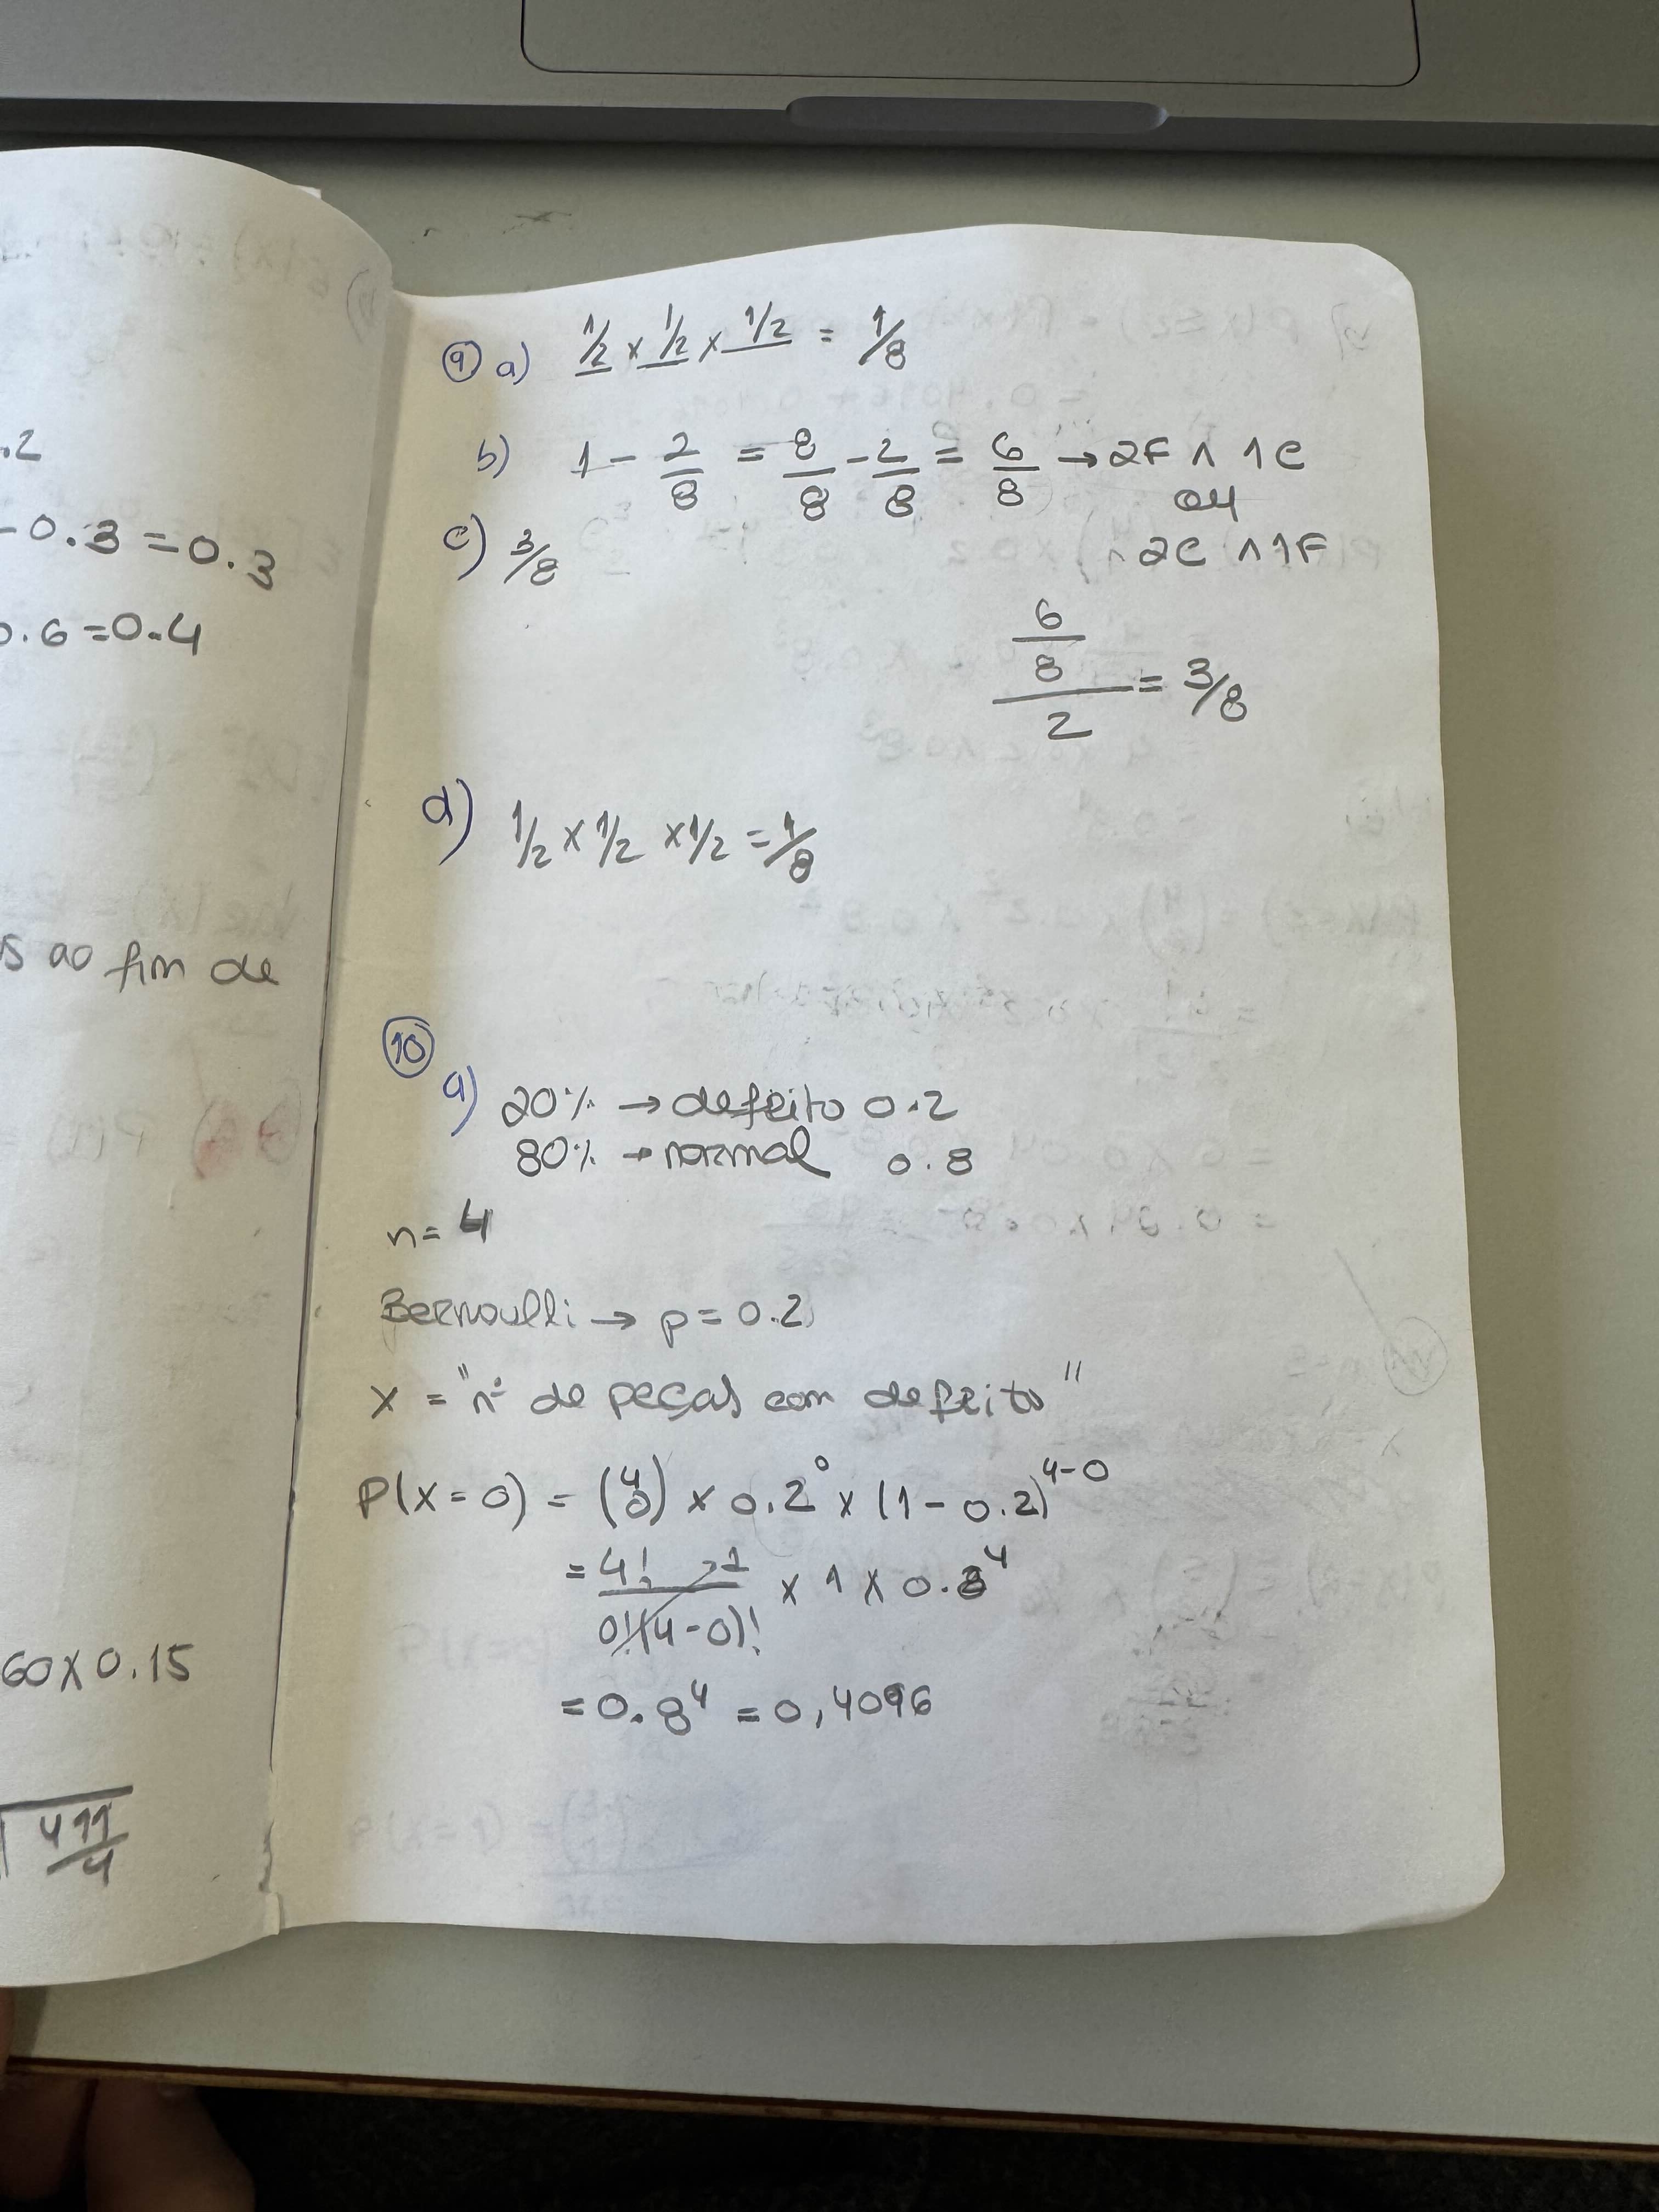 .2
-0.3 = 0.3
0.6 = 0.4
s ao fim de
60 x 0.15
4 11
4
9 a) 1/2 x 1/2 x 1/2 = 1/8
b) 1 - 2/8 = 8/8 - 2/8 = 6/8 → 2F ∧ 1C
ou
2C ∧ 1F
c) 3/8
6/8 / 2 = 3/8
d) 1/2 x 1/2 x 1/2 = 1/8
10
a) 20% → defeito 0.2
80% → normal 0.8
n = 4
Bernoulli → p = 0.2
X = "nº de peças com defeito"
P(X = 0) = (4 0) x 0.2^0 x (1 - 0.2)^4-0
= 4!/0!(4-0)! → 1 x 1 x 0.8^4
= 0.8^4 = 0,4096